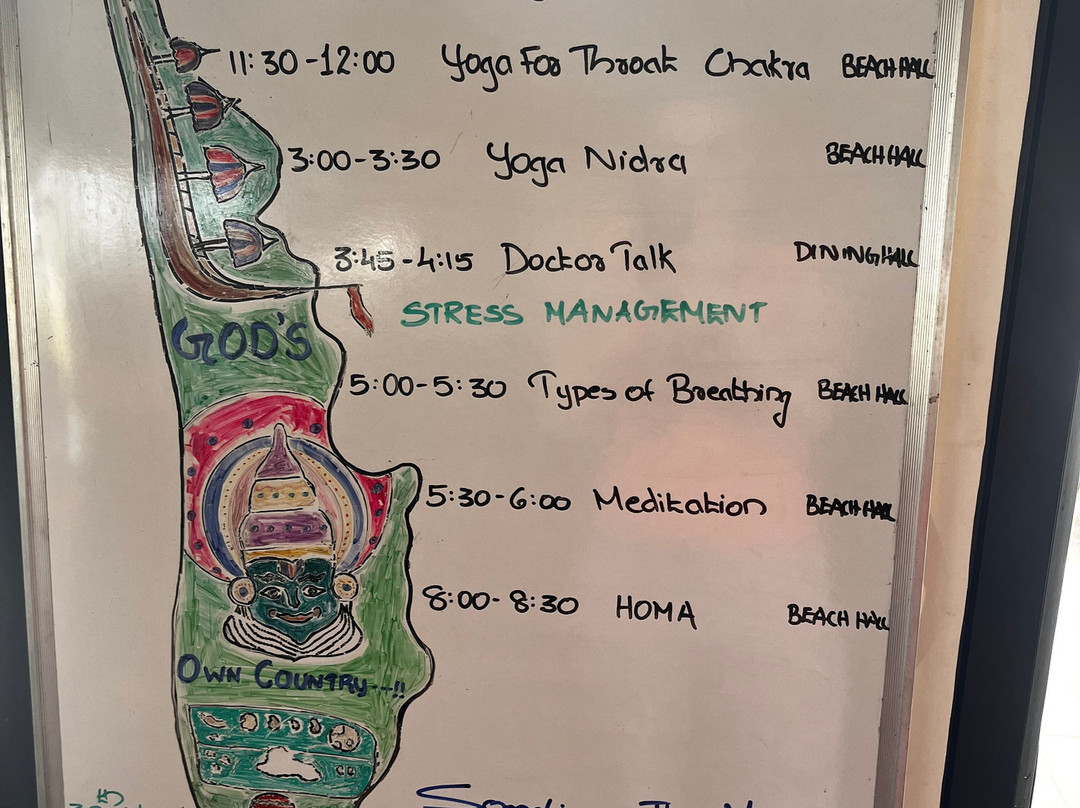 11:30-12:00 Yoga For Throat Chakra BEACH HALL
3:00-3:30 Yoga Nidra BEACH HALL
3:45-4:15 Doctor Talk DINING HALL
STRESS MANAGEMENT
GOD'S
5:00-5:30 Types of Breathing BEACH HALL
5:30-6:00 Meditation BEACH HALL
8:00-8:30 HOMA BEACH HALL
OWN COUNTRY--!!